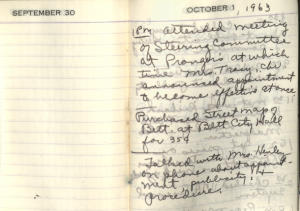 SEPTEMBER 30
OCTOBER 1, 1963
8PM attended meeting
of Steering Committee
at Prongers at which
time Mrs. Tracy, Ch.
announced appointment
to become effective at once
Purchased Street map of
Belt. at Belt City Hall
for 35¢
Talked with Mrs. Henley
on phone about appoint-
ment publicity
procedure.